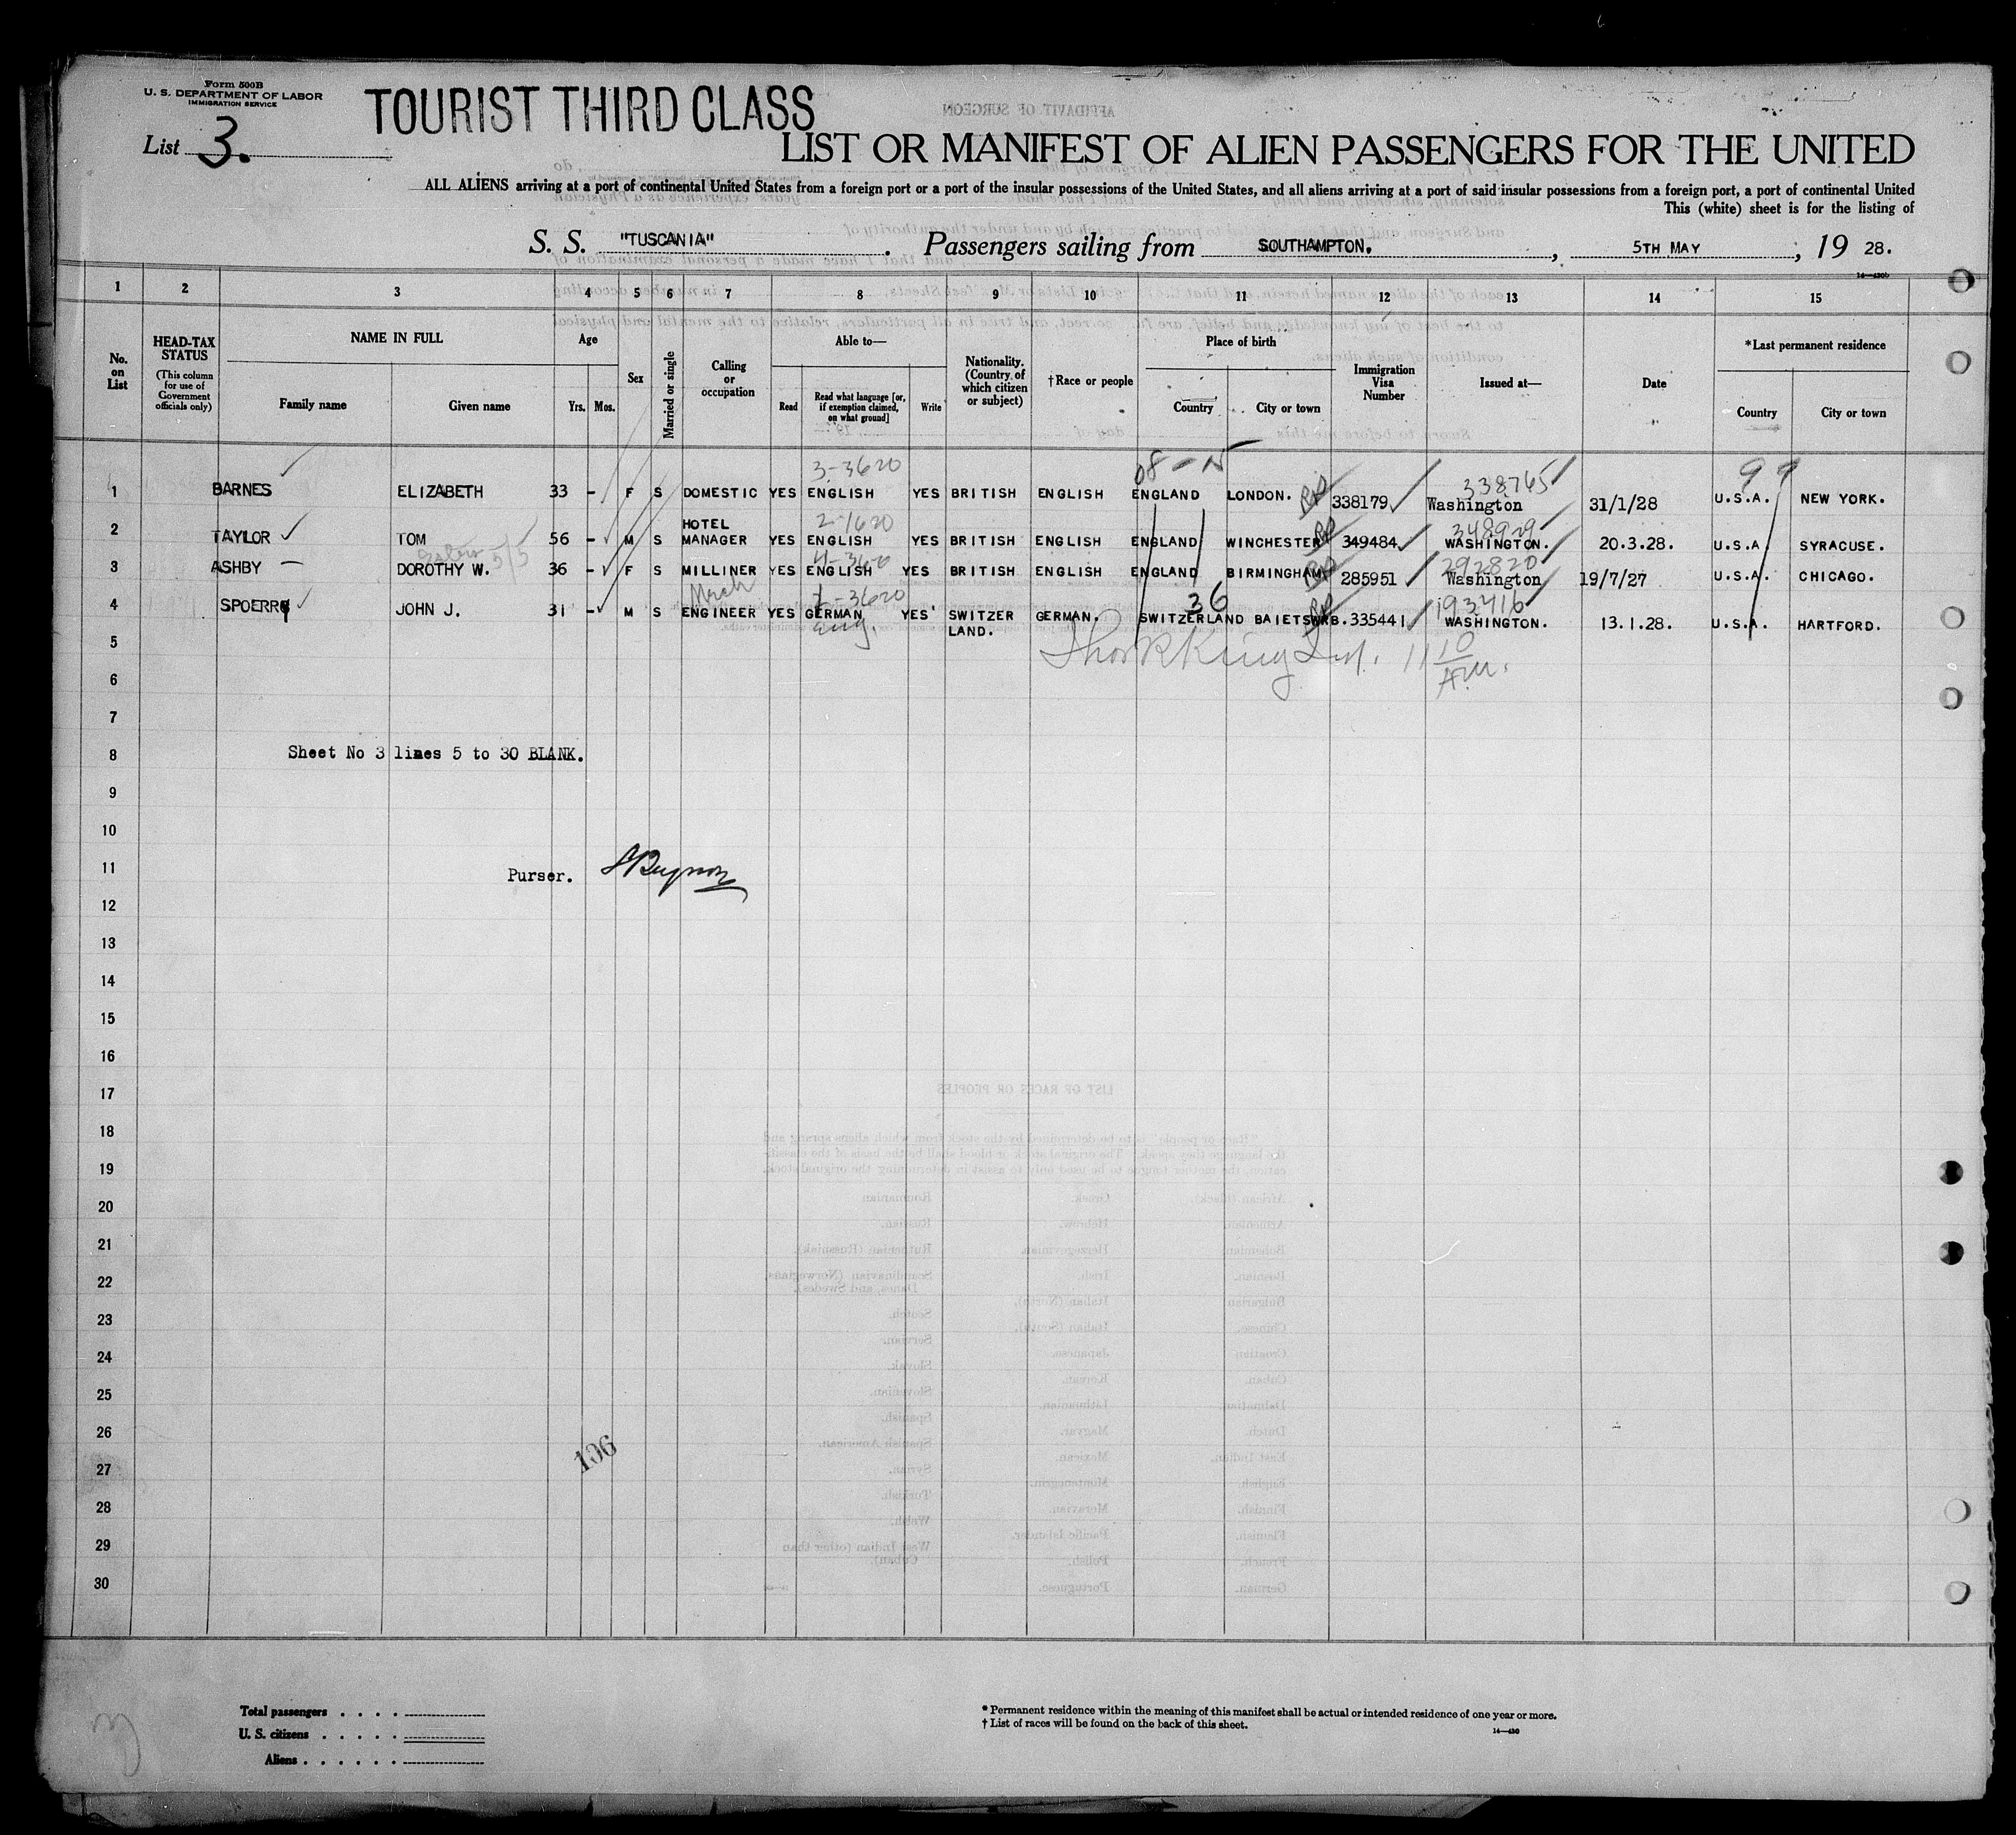 Form 500B
U. S. DEPARTMENT OF LABOR
IMMIGRATION SERVICE
TOURIST THIRD CLASS
List 3.
LIST OR MANIFEST OF ALIEN PASSENGERS FOR THE UNITED
ALL ALIENS arriving at a port of continental United States from a foreign port or a port of the insular possessions of the United States, and all aliens arriving at a port of said insular possessions from a foreign port, a port of continental United
This (white) sheet is for the listing of
S. S. "TUSCANIA" . Passengers sailing from SOUTHAMPTON. , 5TH MAY , 19 28.
1 2 3 4 5 6 7 8 9 10 11 12 13 14 15
No. on List
HEAD-TAX STATUS (This column for use of Government officials only)
NAME IN FULL
Family name Given name
Age
Yrs. Mos.
Sex
Married or single
Calling or occupation
Able to—
Read Read what language [or, if exemption claimed, on what ground] Write
Nationality. (Country of which citizen or subject)
†Race or people
Place of birth
Country City or town
Immigration Visa Number
Issued at—
Date
*Last permanent residence
Country City or town
3-3620 08 - 15 338765 99
1 BARNES ELIZABETH 33 - F S DOMESTIC YES ENGLISH YES BRITISH ENGLISH ENGLAND LONDON. 338179 Washington 31/1/28 U.S.A. NEW YORK.
2-1620 348929
2 TAYLOR TOM 56 - M S HOTEL MANAGER YES ENGLISH YES BRITISH ENGLISH ENGLAND WINCHESTER 349484 WASHINGTON. 20.3.28. U.S.A. SYRACUSE.
5/5 4-3620 292820
3 ASHBY DOROTHY W. 36 - F S MILLINER YES ENGLISH YES BRITISH ENGLISH ENGLAND BIRMINGHAM 285951 Washington 19/7/27 U.S.A. CHICAGO.
Mech 1-3620 36 193416
4 SPOERRY JOHN J. 31 - M S ENGINEER YES GERMAN YES SWITZER LAND. GERMAN. SWITZERLAND BAIETSWRB. 335441 WASHINGTON. 13.1.28. U.S.A. HARTFORD.
Eng.
5
11 10 AM.
6
7
8 Sheet No 3 lines 5 to 30 BLANK.
9
10
11 Purser.
12
13
14
15
16
17
18
19
20
21
22
23
24
25
26
106
27
28
29
30
Total passengers
U. S. citizens
Aliens
* Permanent residence within the meaning of this manifest shall be actual or intended residence of one year or more.
† List of races will be found on the back of this sheet.
14—430
3